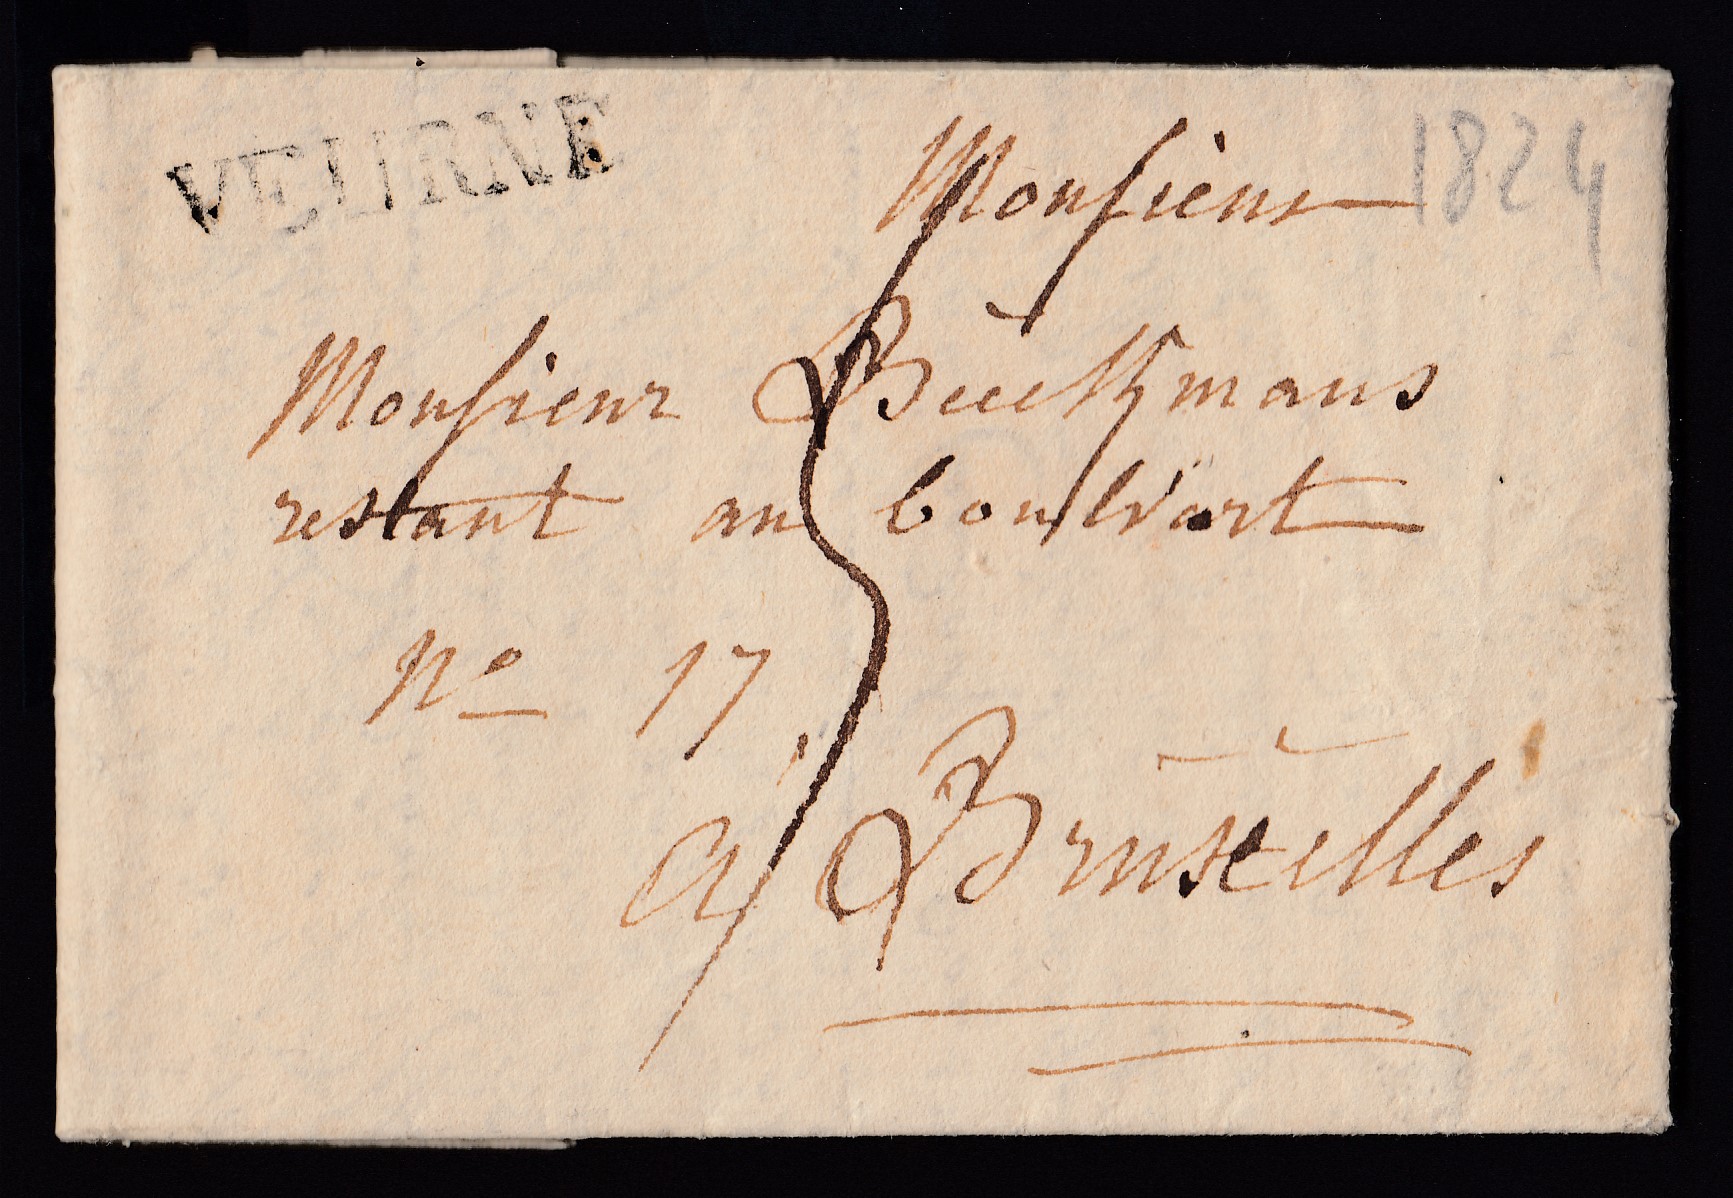 VEURNE
1824
Monsieur
Monsieur Beeckmans
restant au boulvart
No 17
a Bruxelles
5